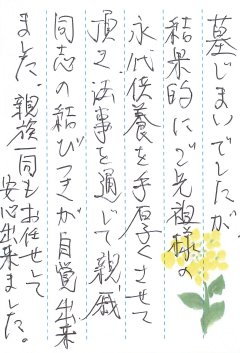 墓じまいでしたが、
結果的にご先祖様の
永代供養を手厚くさせて
頂き、法事を通じて親戚
同志の結びつきが自覚出来
ました。親族一同もお任せして
安心出来ました。